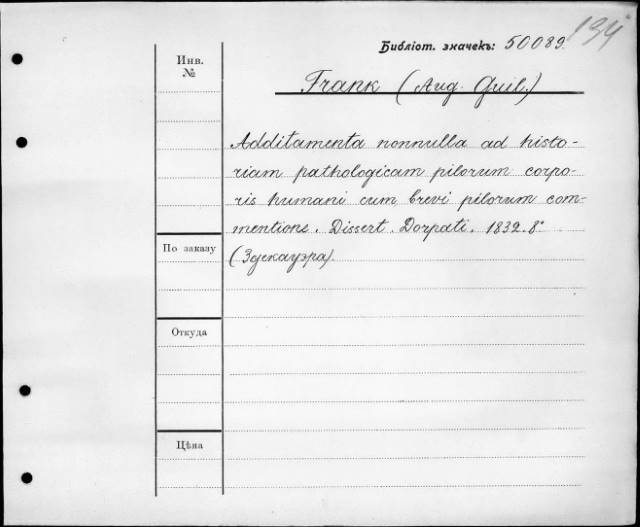 134
Библіот. значекъ: 50089.
Инв.
№
Frank (Aug. Guil.)
Additamenta nonnulla ad histo-
riam pathologicam pilorum corpo-
ris humani cum brevi pilorum com-
mentione. Dissert. Dorpati. 1832. 8°
(Здекауэра).
По заказу
Откуда
Цѣна